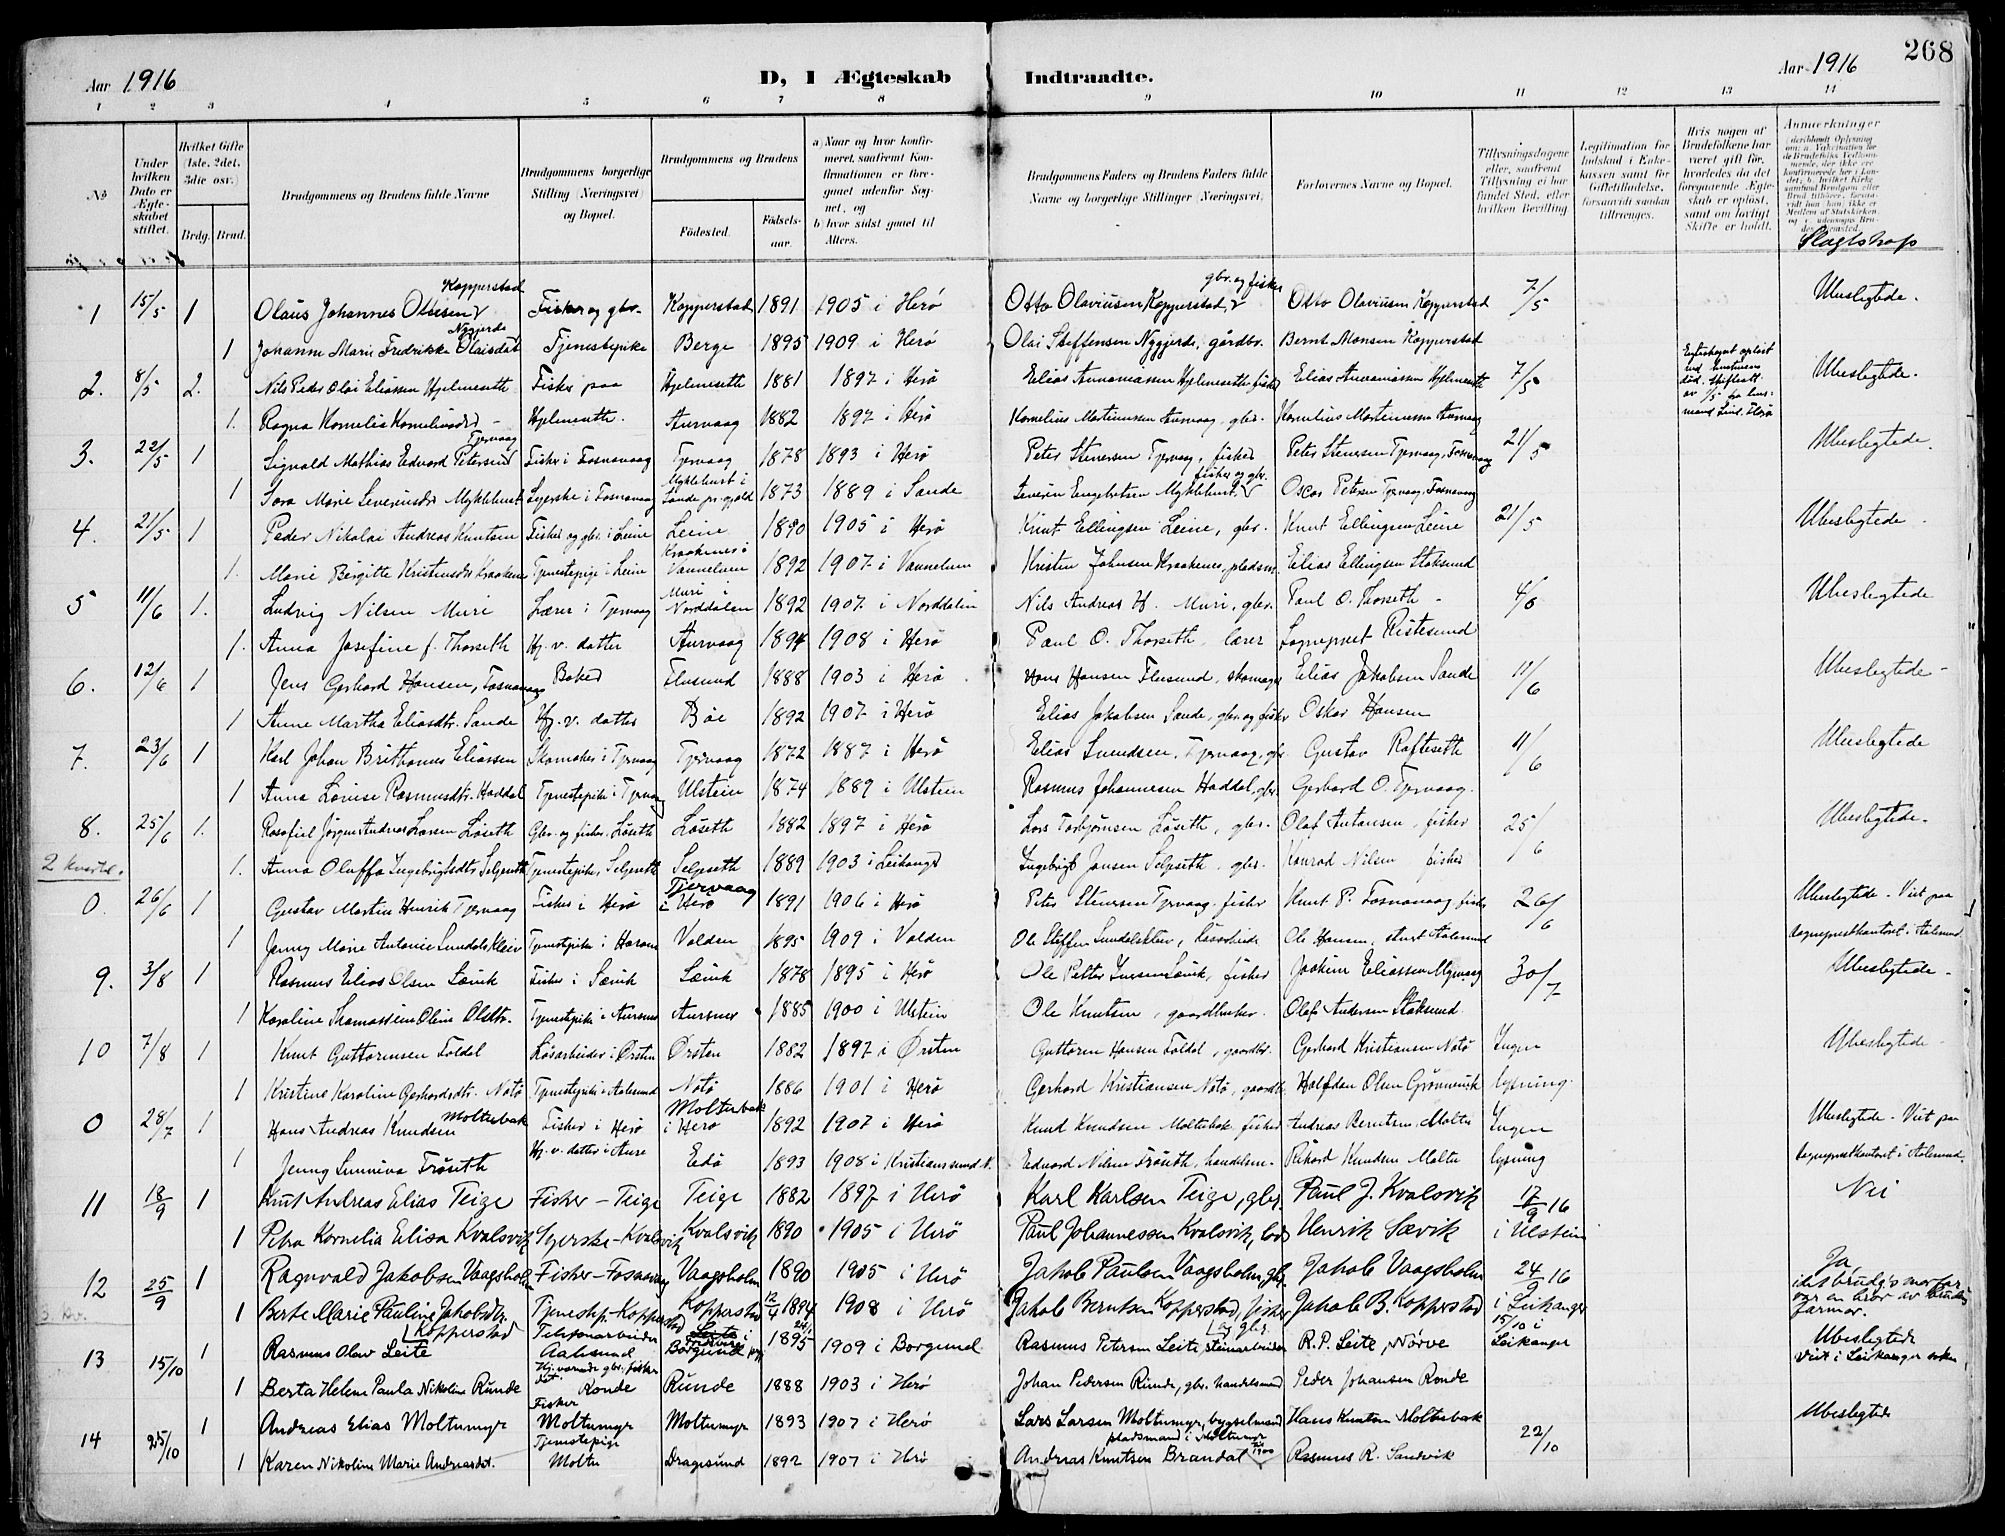 268
Aar 1916
D, I Ægteskab Indtraadte.
Aar 1916
1 2 3 4 5 6 7 8 9 10 11 12 13 14
No
Under hvilken Dato er Ægteskabet stiftet.
Hvilket Gifte (1ste, 2det, 3die osv.)
Brdg. Brud.
Brudgommens og Brudens fulde Navne
Brudgommens borgerlige Stilling (Næringsvei) og Bopæl.
Brudgommens og Brudens
Fødested. Fødselsaar.
a) Naar og hvor konfirmeret, saafremt Konfirmationen er foregaaet udenfor Sognet, og
b) hvor sidst gaaet til Alters.
Brudgommens Faders og Brudens Faders fulde Navne og borgerlige Stillinger (Næringsvei)
Forlovernes Navne og Bopæl.
Tillysningsdagene eller, saafremt Tillysning ei har fundet Sted, efter hvilken Bevilling
Legitimation for Indskud i Enkekassen samt for Giftetilladelse, forsaavidt saadan tiltrænges.
Hvis nogen af Brudefolkene har været gift før, hvorledes da det foregaaende Ægteskab er opløst, samt om lovligt Skifte er holdt.
Anmærkninger
Slagtskap
1 15/5 1 Olaus Johannes Ottesen Kopperstad Fisker og gbr. Kopperstad 1891 1905 i Herø Otto Olaviusen Kopperstad, gbr. og fisker Otto Olaviusen Kopperstad 7/5 Ubeslegtede.
1 Johanne Marie Fredrikke Olaisdat Nygjerde Tjenestepike Berge 1895 1909 i Herø Olai Steffensen Nygjerde, gårdbr. Bernt Monsen Kopperstad
2. 8/5 2. Nils Peder Olai Eliassen Hjelmeseth Fisker paa Hjelmeseth 1881 1897 i Herø Elias Annaniassen Hjelmeseth fisker Elias Annaniassen Hjelmeseth 7/5 Ubeslegtede.
1. Ragna Kornelia Korneliusdr. - Hjelmeseth. Aurvaag 1882 1897 i Herø Kornelius Martinussen Aurvaag, gbr. Kornelius Martinussen Aurvaag
3. 22/5 1 Signald Mathias Edvard Petersen Tjervaag Fisker i Fosnavaag Tjervaag 1878 1893 i Herø Peter Stenersen Tjervaag, fisker Peter Stenersen Tjervaag, Fosnavaag 21/5 Ubeslegtede.
1 Sara Marie Severinsdr. Myklebust Syerske i Fosnavaag Myklebust i Sande pr.gjæld 1873 1889 i Sande Severin Engebretsen Myklebust, fisker og gbr. Oscar Petersen Tjervaag, Fosnavaag
4. 21/5 1 Peder Nikolai Andreas Knutsen Fisker og gbr. i Leine Leine 1890 1905 i Herø Knut Ellingsen Leine, gbr. Knut Ellingsen Leine 21/5 Ubeslegtede.
1. Marie Birgitte Kristensdr. Kraakenes Tjenestepige i Leine Kraakenes i Vannelven 1892 1907 i Vannelven Kristen Johnsen Kraakenes, pladsm. Elias Ellingsen Stoksund
5 11/6 1. Ludvig Nilsen Muri Lærer i Tjervaag Muri i Norddalen 1892 1907 i Norddalen Nils Andreas H. Muri, gbr. Paul O. Thorseth - 4/6 Ubeslegtede
1. Anna Josefine f. Thorseth Hj. v. datter Aurvaag 1894 1908 i Herø Paul O. Thorseth lærer Sogneprest Ristesund
6. 12/6 1 Jens Gerhard Hansen, Fosnavaag Baker Flusund 1888 1903 i Herø Hans Hansen Flusund, skomager Elias Jakobsen Sande 11/6 Ubeslegtede -
1 Anne Martha Eliasdtr. Sande Hj. v. datter Bøe 1892 1907 i Herø Elias Jakobsen Sande, gbr. og fisker Oskar Hansen
7. 23/6 1 Karl Johan Brithanus Eliassen Skomaker i Tjervaag Tjervaag 1872 1887 i Herø Elias Svendsen, Tjervaag, gbr. Gustav Rafteseth 11/6 Ubeslegtede
1 Anna Lovise Rasmusdtr. Haddal Tjenestepike i Tjervaag Ulstein 1874 1889 i Ulstein Rasmus Johannesen Haddal, gbr. Gerhard O. Tjervaag.
8. 25/6 1. Rasofiel Jørgen Andreas Larsen Løseth Gbr. og fisker, Løseth Løseth 1882 1897 i Herø Lars Torbjørnsen Løseth, gbr. Olaf Antonsen, fisker 25/6 Ubeslegtede.
2 kvartal.
1. Anna Oluffa Ingebrigtsdtr. Selgseth Tjenestepike, Selgseth Selgseth 1889 1903 i Leikanger Ingebrigt Jansen Selgseth gbr. Konrad Nilsen fisker
0. 26/6 1 Gustav Martin Henrik Tjervaag Fisker i Herø Tjervaag i Herø 1891 1906 i Herø Peter Stenersen Tjervaag fisker Knut P. Fosnavaag fisker 26/6 Ubeslegtede. Viet paa
1 Jenny Marie Antonie Sundalskleiv Tjenestepike i Volden 1895 1909 i Volden Ole Steffen Sundalskleiv, Løsarbeider Ole Hansen, Aalesund sogneprestkontoret i Aalesund.
9. 3/8 1 Rasmus Elias Olsen Sævik Fisker i Sævik Sævik 1878 1895 i Herø Ole Petter Iversen Sævik, fisker Joakim Eliassen Myrvaag 30/7 Ubeslegtede -
1 Karoline Thomassine Oline Olsdtr. Tjenestepike i Aursnes Aursnes 1885 1900 i Ulstein Ole Knutsen, gaardbruker. Olaf Andersen Stoksund
10 7/8 1 Knut Guttormsen Foldal Løsarbeider i Ørsten Ørsten 1882 1897 i Ørsten Guttorm Hansen Foldal, gaardbr. Gerhard Kristiansen Notø Ingen Ubeslegtede
1 Kristine Karoline Gerhardsdtr. Notø Tjenestepike i Aalesund Notø 1886 1901 i Herø Gerhard Kristiansen Notø, gaardbr. Halfdan Olsen Grønnevik lysning.
0 28/7 1 Hans Andreas Knudsen Moltubak Fisker i Herø Moltubak i Herø 1892 1907 i Herø Knud Knudsen Moltubak, fisker Andreas Berntsen, Moltu Ingen Ubeslegtede. Viet paa
1 Jenny Sunniva Frøseth Hj. v. datter i Aure Edø 1893 1908 i Kristiansund N. Edvard Nilsen Frøseth, handelsm. Rikard Knudsen Moltu lysning sogneprestkontoret i Aalesund.
11 18/9 1 Knut Andreas Elias Teige Fisher - Teige Teige 1882 1897 i Herø Karl Karlsen Teige, gbr. Paul J. Kvalsvik 17/9 16 Nei
1 Petra Kornelia Elisa Kvalsvik Syerske - Kvalsvik Kvalsvik 1890 1905 i Herø Paul Johannessen Kvalsvik, lods Henrik Sævik i Ulstein
12 25/9 1 Ragnvald Jakobsen Vaagsholm Fisher - Fosnavaag Vaagsholm 1890 1905 i Herø Jakob Paulsen Vaagsholm, gbr. Jakob Vaagsholm 24/9 16 Ja,
3 kv.
1 Berte Marie Pauline Jakobsdtr. Kopperstad Tjenestep. - Kopperstad Kopperstad 12/4 1894 1908 i Herø Jakob Berntsen Kopperstad, fisker og gbr. Jakob B. Kopperstad i Leikanger
13 15/10 1 Rasmus Olav Leite Telefonarbeider Aalesund Borgund 1895 1909 i Borgund Rasmus Petersen Leite, stenarbeider R. P. Leite, Nørve 15/10 i Leikanger Ubeslegtede Viet i Leikanger
1 Berta Helene Paula Nikoline Runde Hj. værende gbr. fisker dat. Ronde Runde 1888 1903 i Herø Johan Pedersen Runde, gbr. handelsmand Peder Johansen Ronde
14 25/10 1 Andreas Elias Moltumyr Fisker Moltumyr Moltumyr 1893 1907 i Herø Lars Larsen Moltumyr, bygselmand Hans Knutsen Moltubak 22/10 Ubeslegtede
1 Karen Nikoline Marie Andreasdat. Tjenestepige Moltu Dragesund 1892 1907 i Herø Andreas Knutsen Brandal pladsmand i Moltumyr Rasmus R. Sandvik